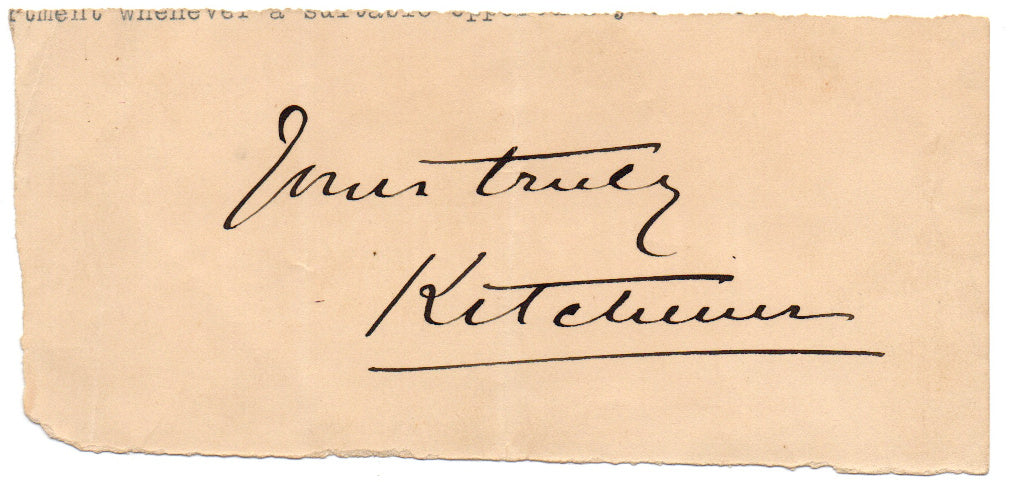 rtment whenever a suitable opportunity
Yours truly
Kitchener